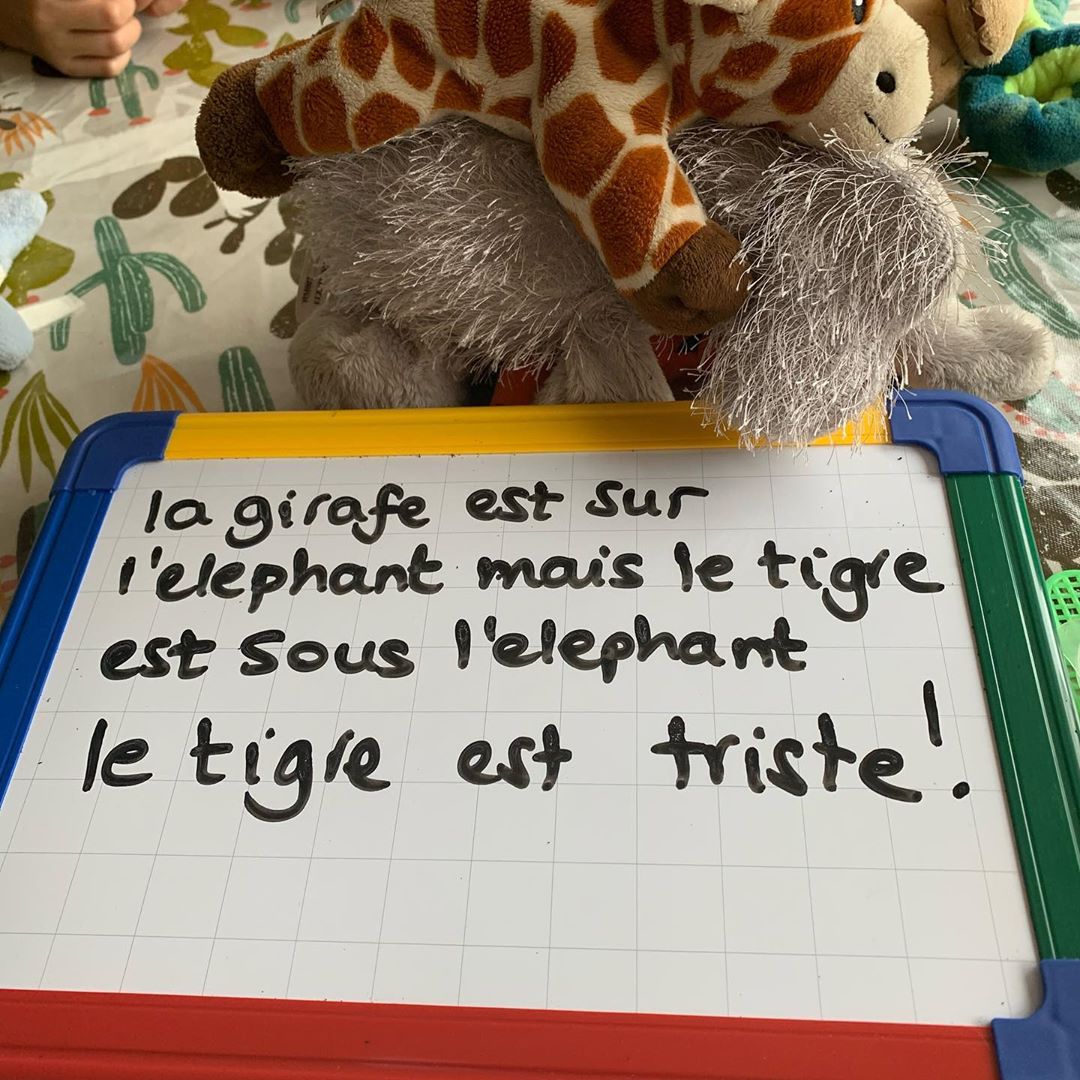 la girafe est sur
l'elephant mais le tigre
est sous l'elephant
le tigre est triste!